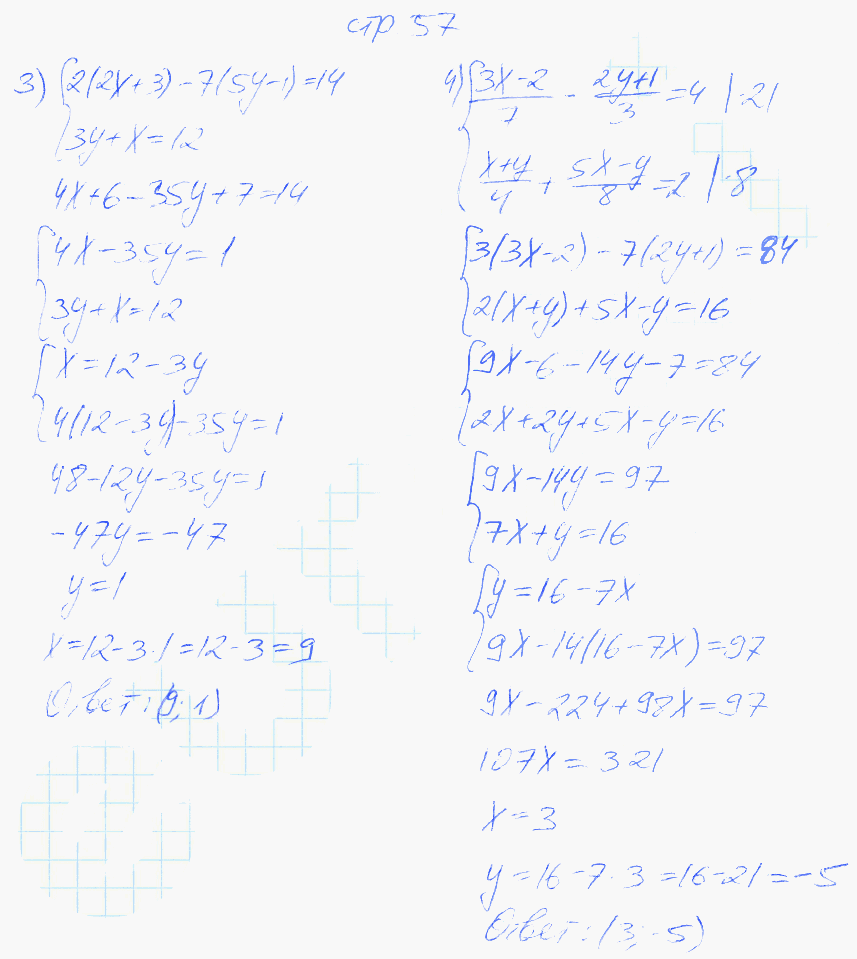 стр 57
3) {2(2x+3) - 7(5y-1) = 14
{3y + x = 12
4x + 6 - 35y + 7 = 14
{4x - 35y = 1
{3y + x = 12
{x = 12 - 3y
{4(12 - 3y) - 35y = 1
48 - 12y - 35y = 1
-47y = -47
y = 1
x = 12 - 3·1 = 12 - 3 = 9
Ответ: (9; 1)
4) {(3x-2)/7 - (2y+1)/3 = 4 |·21
{(x+y)/4 + (5x-y)/8 = 2 |·8
{3(3x-2) - 7(2y+1) = 84
{2(x+y) + 5x - y = 16
{9x - 6 - 14y - 7 = 84
{2x + 2y + 5x - y = 16
{9x - 14y = 97
{7x + y = 16
{y = 16 - 7x
{9x - 14(16 - 7x) = 97
9x - 224 + 98x = 97
107x = 321
x = 3
y = 16 - 7·3 = 16 - 21 = -5
Ответ: (3; -5)